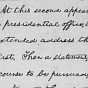 At this second appear
presidential office
extended address tha
irst. Then a statement
course to be pursued